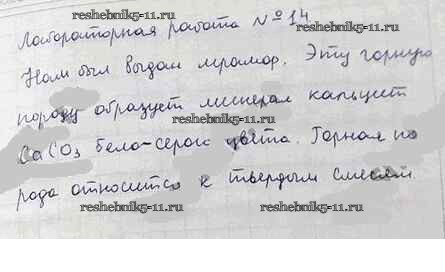 reshebnik5-11.ru
Лабораторная работа №14
Нам был выдан мрамор. Эту горную
reshebnik5-11.ru
породу образует минерал кальцит
CaCO3 бело-серого цвета. Горная по
reshebnik5-11.ru
рода относится к твердым смесям.
reshebnik5-11.ru
reshebnik5-11.ru